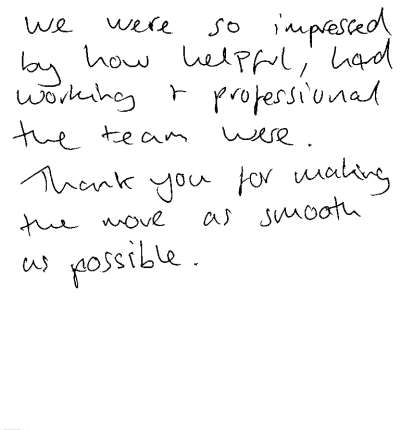 We were so impressed
by how helpful, hard
working + professional
the team were.
Thank you for making
the move as smooth
as possible.